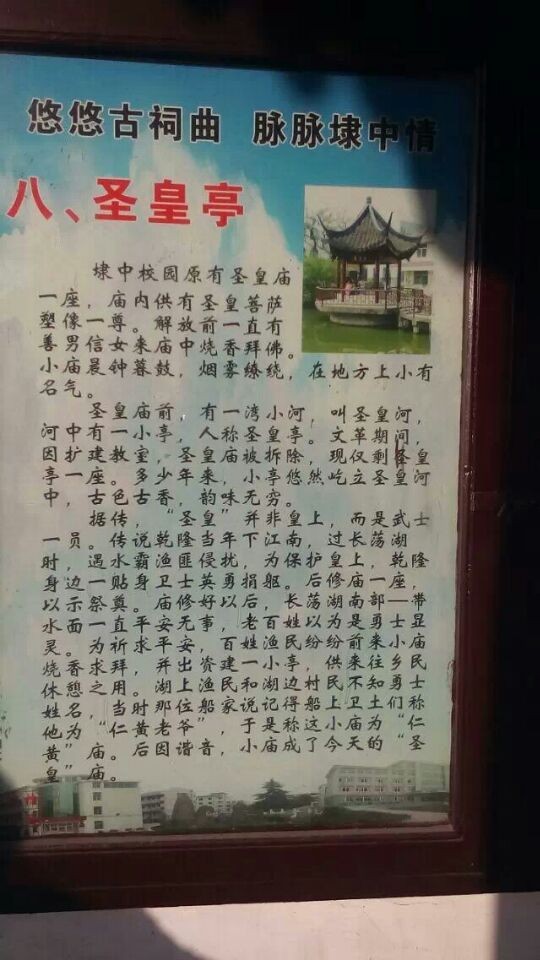 悠悠古祠曲 脉脉埭中情
八、圣皇亭
埭中校园原有圣皇庙
一座，庙内供有圣皇菩萨
塑像一尊。解放前一直有
善男信女来庙中烧香拜佛。
小庙晨钟暮鼓，烟雾缭绕，在地方上小有
名气。
圣皇庙前，有一湾小河，叫圣皇河，
河中有一小亭，人称圣皇亭。文革期间，
因扩建教室，圣皇庙被拆除，现仅剩圣皇
亭一座。多少年来，小亭悠然屹立圣皇河
中，古色古香，韵味无穷。
据传，“圣皇”并非皇上，而是武士
一员。传说乾隆当年下江南，过长荡湖
时，遇水霸渔匪侵扰，为保护皇上，乾隆
身边一贴身卫士英勇捐躯。后修庙一座，
以示祭奠。庙修好以后，长荡湖南部一带
水面一直平安无事，老百姓以为是勇士显
灵。为祈求平安，百姓渔民纷纷前来小庙
烧香求拜，并出资建一小亭，供来往乡民
休憩之用。湖上渔民和湖边村民不知勇士
姓名，当时那位船家说记得船上卫士们称
他为“仁黄老爷”，于是称这小庙为“仁
黄”庙。后因谐音，小庙成了今天的“圣
皇”庙。